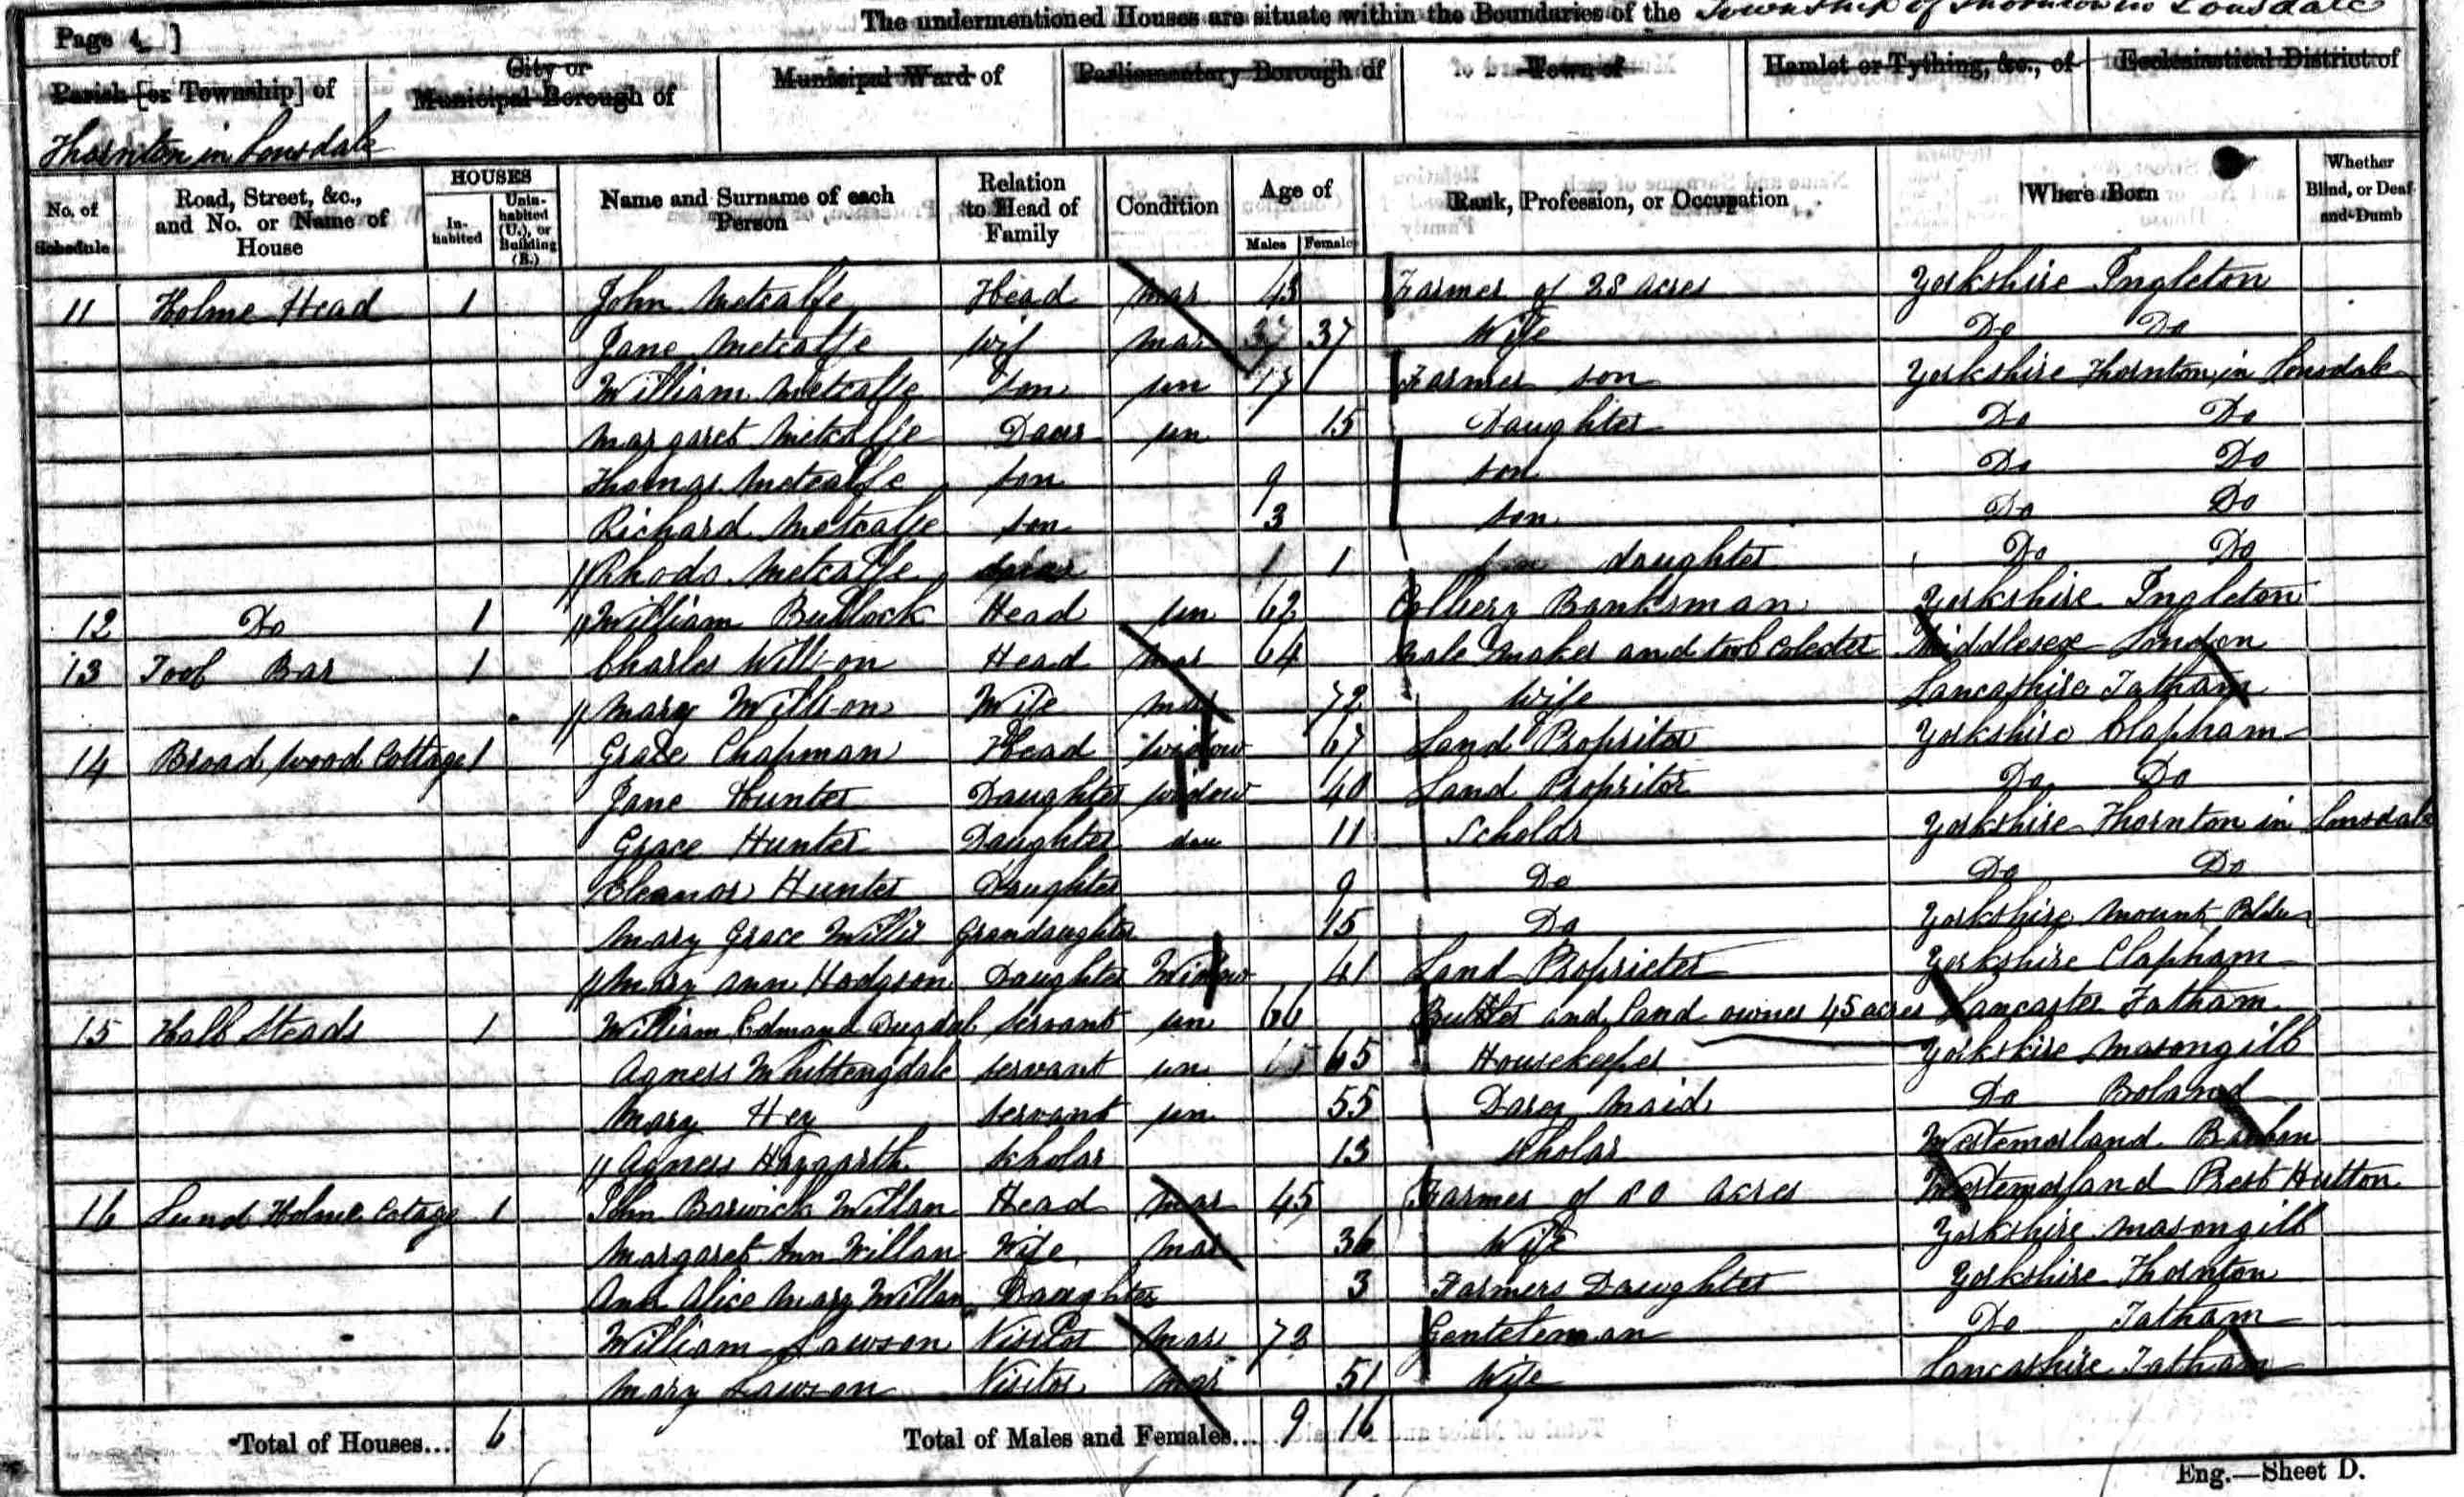 The undermentioned Houses are situate within the Boundaries of the Township of Thornton in Lonsdale
Page 4 ]
Parish [or Township] of
City or Municipal Borough of
Municipal Ward of
Parliamentary Borough of
Town of
Hamlet or Tything, &c., of
Ecclesiastical District of
Thornton in Lonsdale
No. of Schedule
Road, Street, &c., and No. or Name of House
HOUSES
In-habited
Unin-habited (U.), or Building (B.)
Name and Surname of each Person
Relation to Head of Family
Condition
Age of
Males
Females
Rank, Profession, or Occupation
Where Born
Whether Blind, or Deaf-and-Dumb
11 Holme Head 1 John Metcalfe Head Mar 43 Farmer of 28 Acres Yorkshire Ingleton
Jane Metcalfe Wif Mar 37 37 Wife Do Do
William Metcalfe Son Un 17 Farmer son Yorkshire Thornton in Lonsdale
Margaret Metcalfe Daur Un 15 Daughter Do Do
Thomas Metcalfe Son 9 Son Do Do
Richard Metcalfe Son 3 Son Do Do
Rhoda Metcalfe 1 1 daughter Do Do
12 Do 1 William Bullock Head Un 62 Colliery Banksman Yorkshire Ingleton
13 Tool Bar 1 Charles Willson Head Mar 64 Maker and tool Colecter Middlesex London
Mary Willson Wife Mar 72 Wife Lancashire Tatham
14 Broad wood Cottage 1 Grace Chapman Head Widow 67 Land Propritor Yorkshire Clapham
Jane Hunter Daughter Widow 40 Land Propritor Do Do
Grace Hunter Daughter 11 Scholar Yorkshire Thornton in Lonsdale
Eleanor Hunter Daughter 9 Do Do Do
Mary Grace Willis Grandaughter 15 Do Yorkshire Mount
Mary Ann Hodgson Daughter Widow 41 Land Proprietor Yorkshire Clapham
15 Hall Steads 1 William Edmand Dugdal Servant Un 66 Butler and land owner 45 acres Lancaster Tatham
Agness Whittengdale Servant Un 65 65 Housekeeper Yorkshire Masongill
Mary Hey Servant Un 55 Darey Maid Do Boland
Agness Haygarth Scholar 13 Scholar Westemorland Barbon
16 Lund Holme Cotage 1 John Barwick Willan Head Mar 45 Farmer of 80 Acres Westemorland Prest Hutton
Margaret Ann Willan Wife Mar 36 Wife Yorkshire Masongill
Ann Alice Mary Willan Daughter 3 Farmers Daughter Yorkshire Thornton
William Lawson Visitor Mar 73 Gentelman Do Tatham
Mary Lawson Visitor Mar 51 Wife Lancashire Tatham
Total of Houses... 6
Total of Males and Females... 9 16
Eng.—Sheet D.